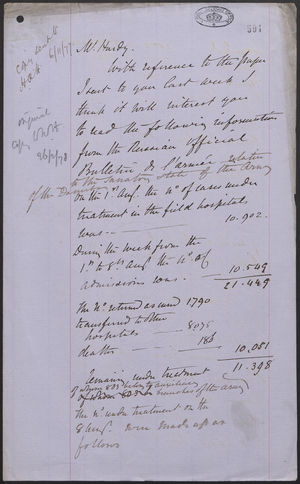 591
Mr Hardy.
With reference to the paper
I sent to you last week I
think it will interest you
to read the following information
from the Russian Official
Bulletin de l'armée relative
to the Sanatory state of the Army
of the Danube
On the 1st Aug. the No of cases under
treatment in the field hospitals
was 10.902.
During the week from the
1st to 8th Aug the No of
admissions was. 10.549
21.449
The No returned as cured 1790
transferred to other
hospitals 8075
deaths 186
10,051
Remaining under treatment 11.398
branches of the army)
The No under treatment on the
8 Aug. were made up as
follows
sent to
6/11/77
original
26/2/78